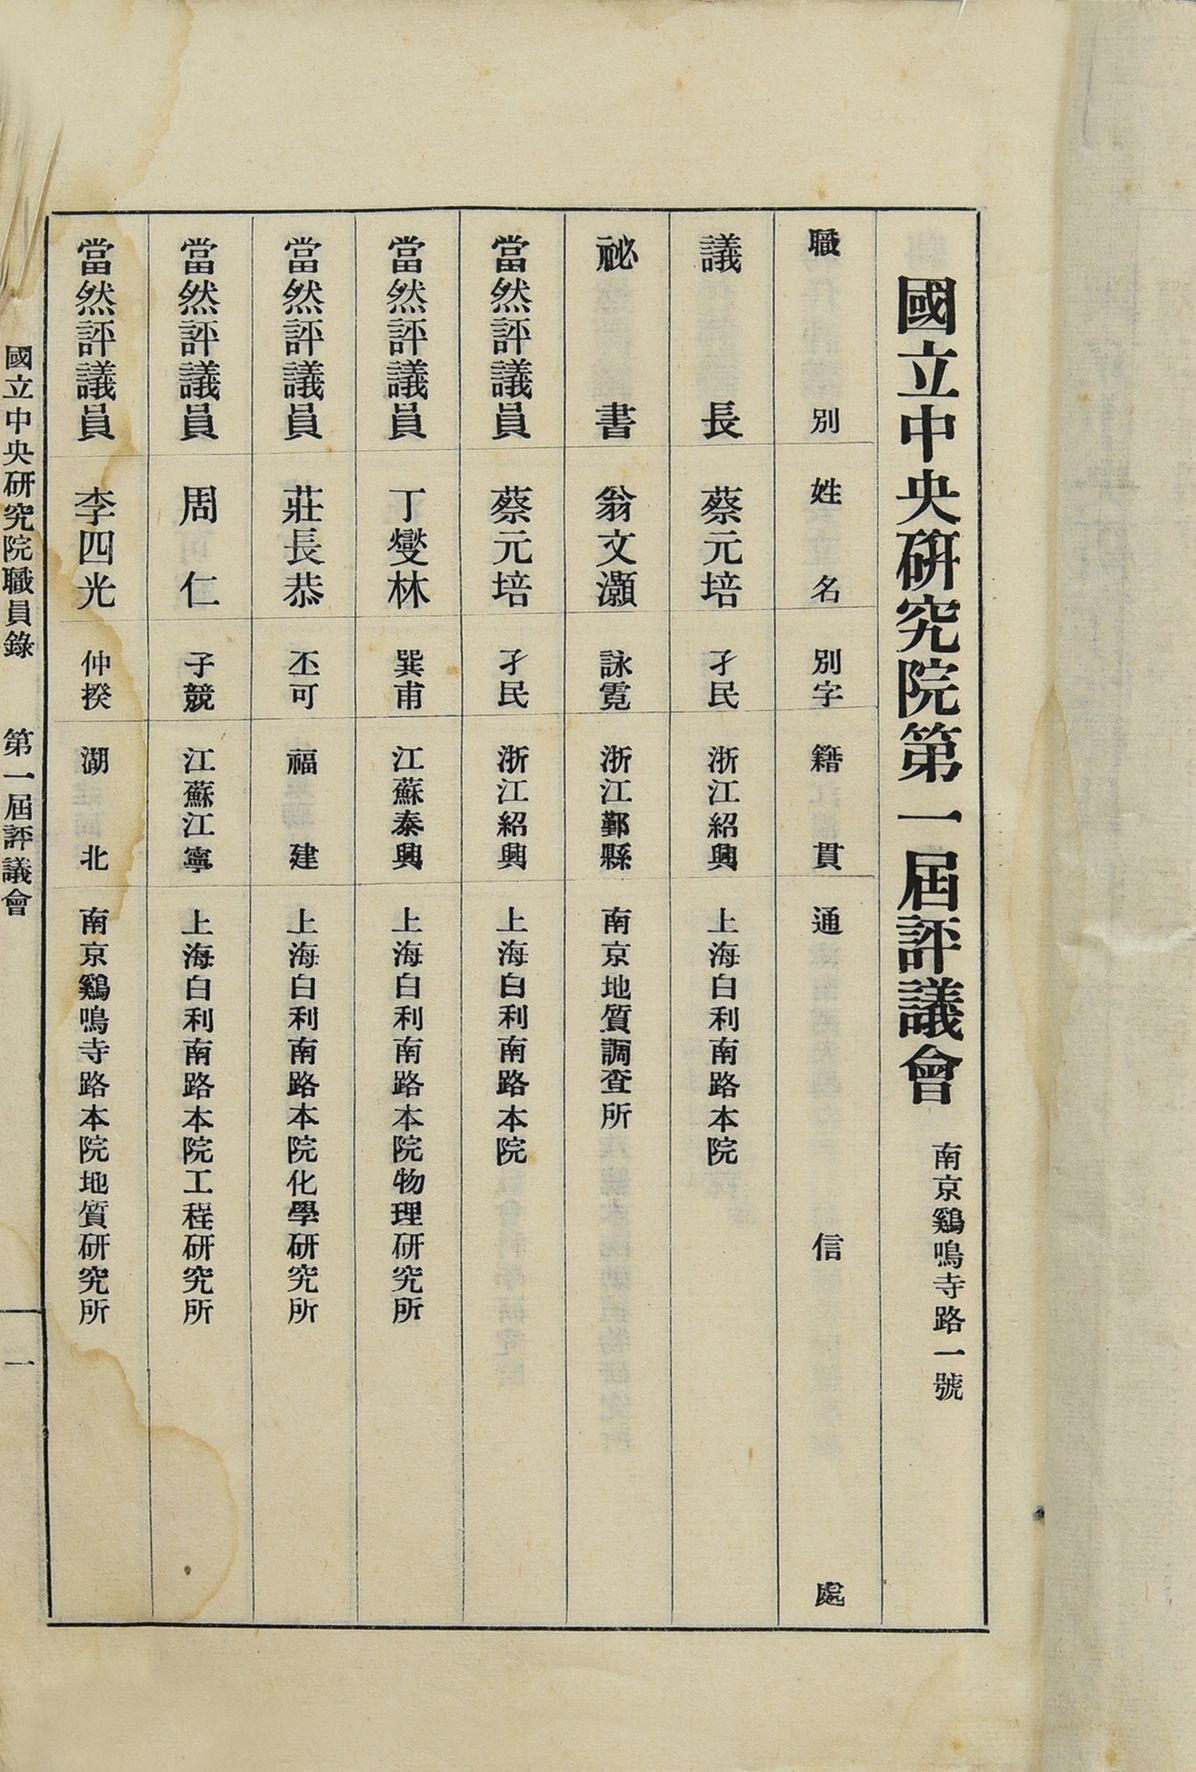 國立中央研究院第一屆評議會 南京鷄鳴寺路一號
職別 姓名 別字 籍貫 通信處
議長 蔡元培 孑民 浙江紹興 上海白利南路本院
祕書 翁文灝 詠霓 浙江鄞縣 南京地質調查所
當然評議員 蔡元培 孑民 浙江紹興 上海白利南路本院
當然評議員 丁燮林 巽甫 江蘇泰興 上海白利南路本院物理研究所
當然評議員 莊長恭 丕可 福建 上海白利南路本院化學研究所
當然評議員 周仁 子競 江蘇江寧 上海白利南路本院工程研究所
當然評議員 李四光 仲揆 湖北 南京鷄鳴寺路本院地質研究所
國立中央研究院職員錄 第一屆評議會 一